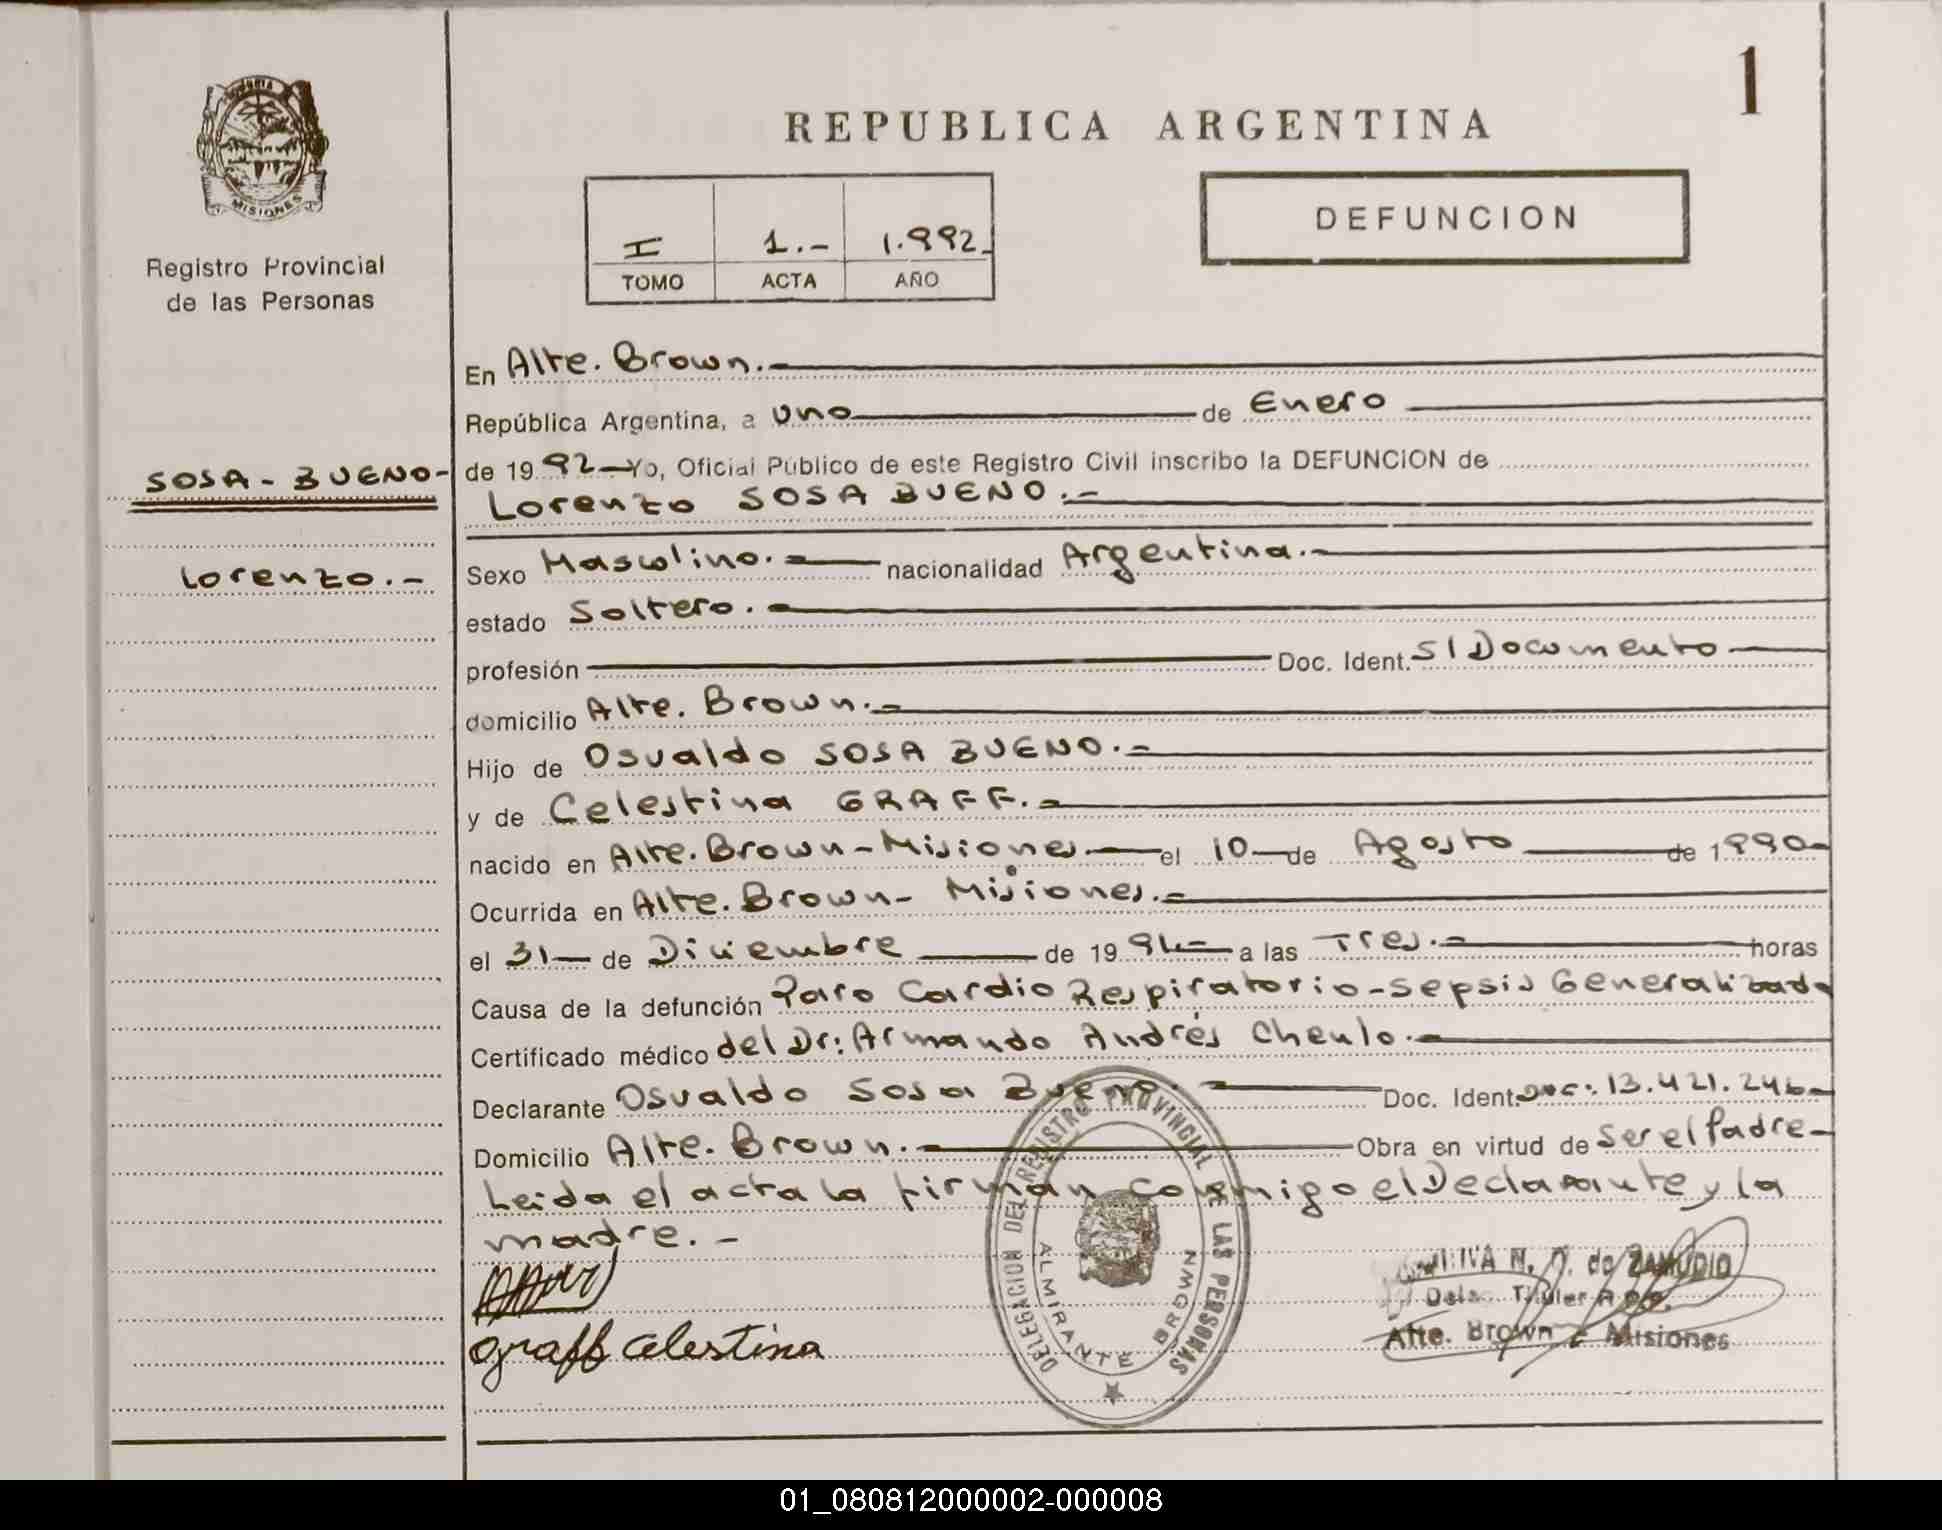 1
MISIONES
Registro Provincial
de las Personas
REPUBLICA ARGENTINA
DEFUNCION
I 1.- 1.992.
TOMO ACTA AÑO
En Alte. Brown.-
República Argentina, a uno de Enero
SOSA - BUENO-
de 19 92 Yo, Oficial Público de este Registro Civil inscribo la DEFUNCION de
Lorenzo SOSA BUENO.-
Lorenzo.-
Sexo Masculino.- nacionalidad Argentina.-
estado Soltero.-
profesión Doc. Ident. S/Documento
domicilio Alte. Brown.-
Hijo de Osvaldo SOSA BUENO.-
y de Celestina GRAFF.-
nacido en Alte. Brown-Misiones el 10 de Agosto de 1990-
Ocurrida en Alte. Brown- Misiones.-
el 31 de Diciembre de 19 a las Tres.- horas
Causa de la defunción Paro Cardio Respiratorio-Sepsis Generalizada
Certificado médico del Dr: Armando Andrés Chenlo.-
Declarante Osvaldo Sosa Bueno.- Doc. Ident. 13.421.246-
Domicilio Alte. Brown.- Obra en virtud de Ser el Padre-
Leida el acta la firman conmigo el Declarante y la
madre.-
graff celestina
DELEGACION DEL REGISTRO PROVINCIAL DE LAS PERSONAS
ALMIRANTE BROWN
N. O. de ZAMUDIO
Titular
Alte. Brown - Misiones
01_080812000002-000008